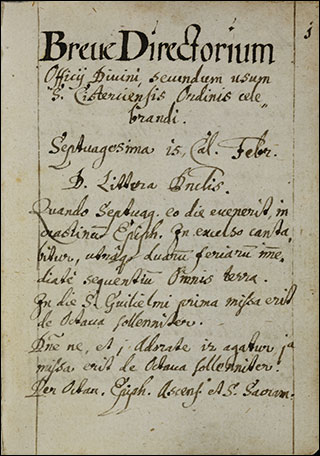 Breue Directorium
Officij Diuini, secundum usum
S. Cisterciensis Ordinis cele-
brandi.
Septuagesima is, Cal. Febr.
D. Littera
Quando Septuag. eo die euenerit, in
crastinũ Epiph. In excelso canta-
bitur, utráqȝ duarũ feriarũ im̃e-
diatè sequentiũ Omnis terra.
In die S. Guilielmi prima missa erit
de Octaua sollenniter.
Dñe ne, et Adorate agatur
missa erit de Octaua sollenniter.
Per Octau. Epiph. Ascens. et S. Sacram.